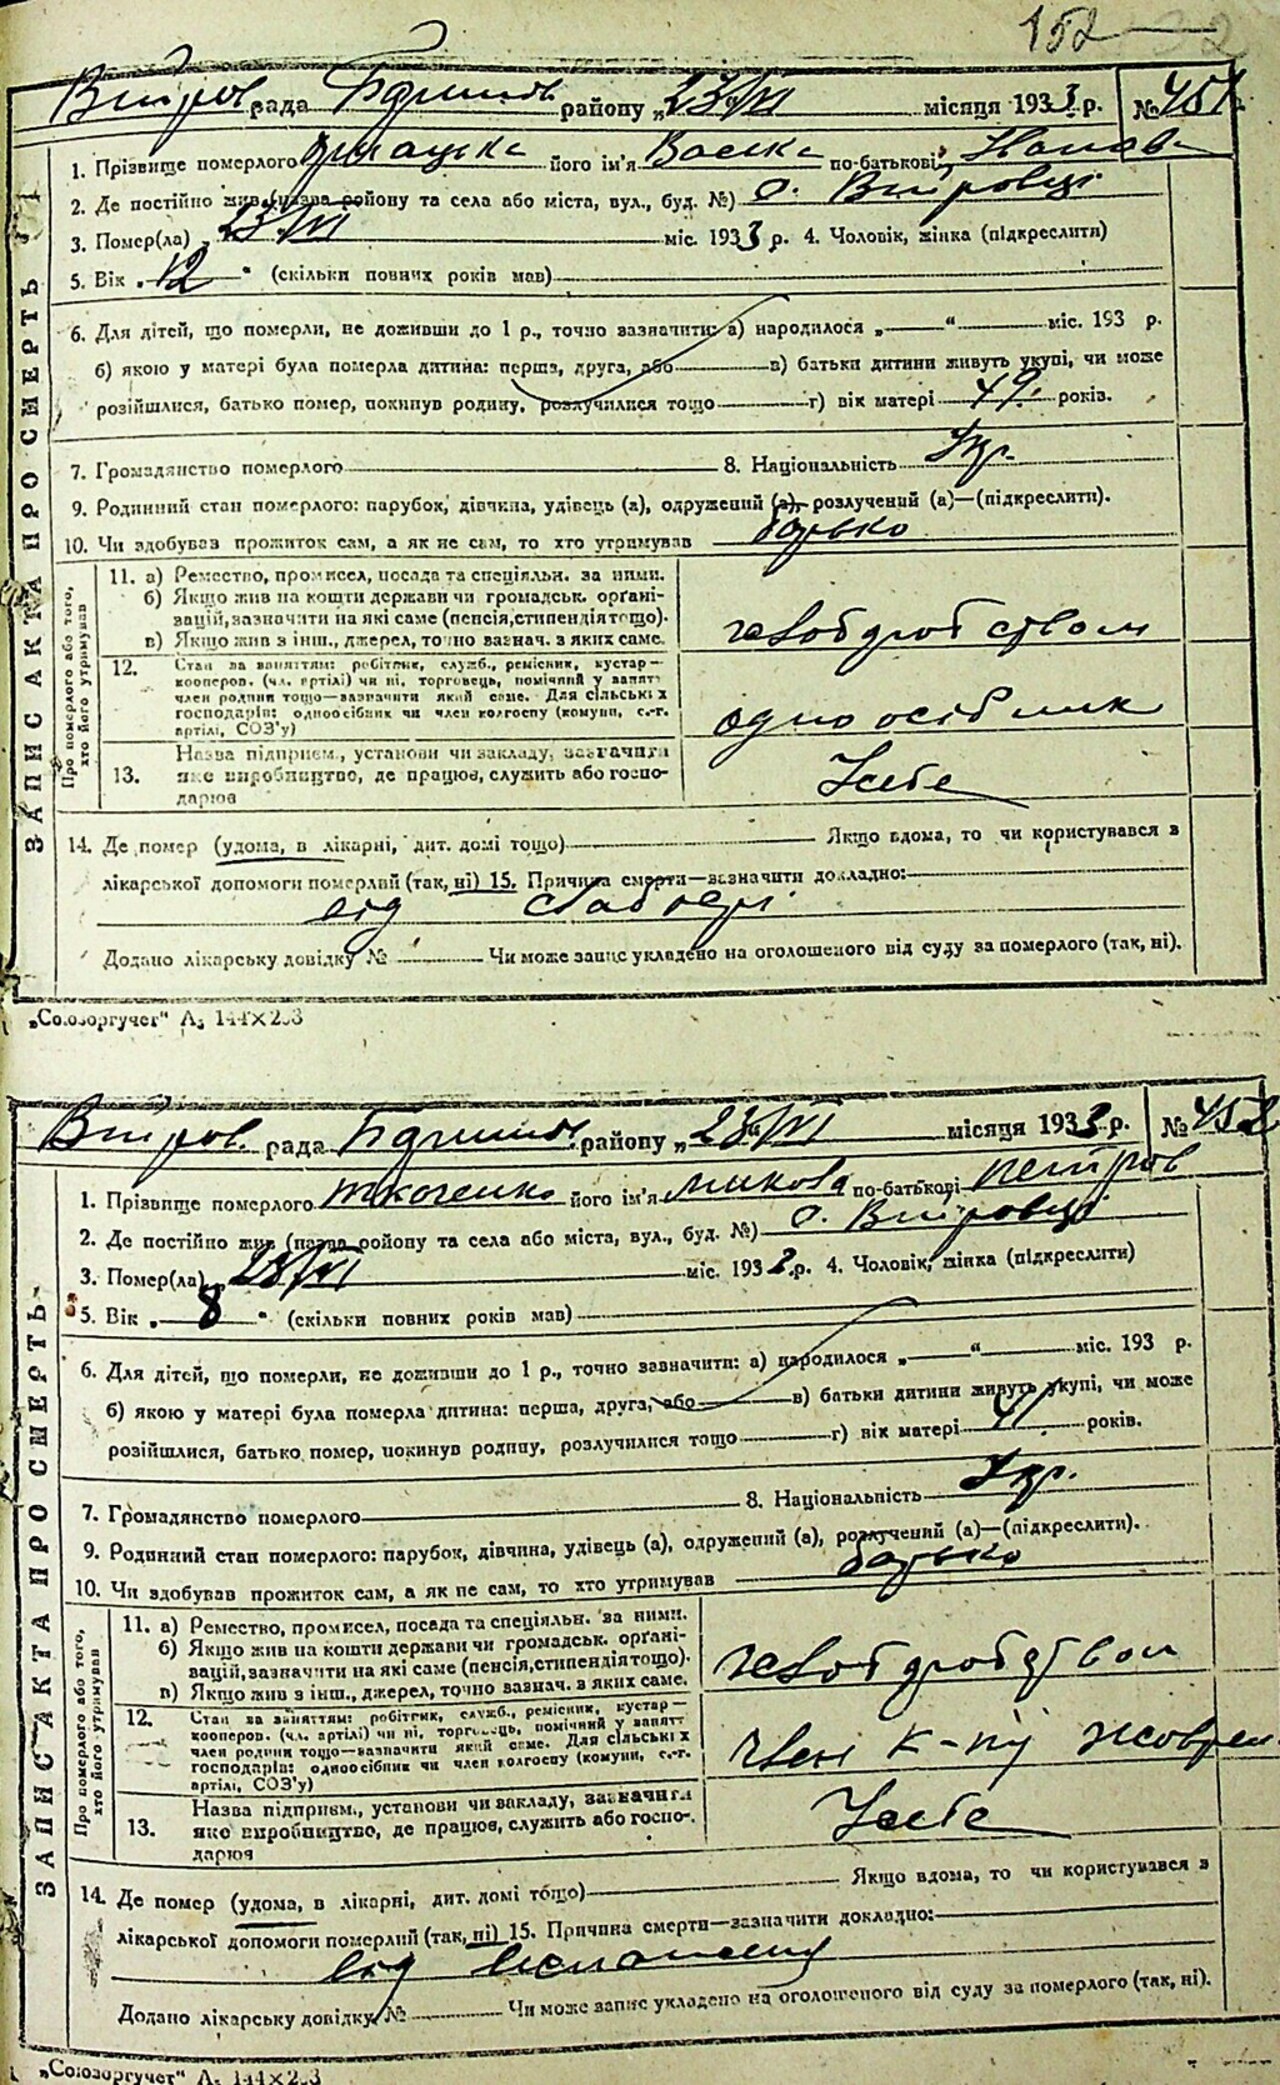 152
рада району „23/VI місяця 1933 р. № 451
1. Прізвище померлого його ім'я Васька по-батькові
2. Де постійно жив (назва району та села або міста, вул., буд. №) с. Вітровці
3. Помер(ла) „23/VI міс. 1933 р. 4. Чоловік, жінка (підкреслити)
5. Вік „12" (скільки повних років мав)
6. Для дітей, що померли, не доживши до 1 р., точно зазначити: а) народилося „ " міс. 193 р.
б) якою у матері була померла дитина: перша, друга, або в) батьки дитини живуть укупі, чи може
розійшлися, батько помер, покинув родину, розлучилися тощо г) вік матері 49 років.
7. Громадянство померлого 8. Національність Укр.
9. Родинний стан померлого: парубок, дівчина, удівець (а), одружений (а), розлучений (а)—(підкреслити).
10. Чи здобував прожиток сам, а як не сам, то хто утримував батько
ЗАПИС АКТА ПРО СМЕРТЬ
Про померлого або того, хто його утримував
11. а) Ремество, промисел, посада та спеціяльн. за ними.
б) Якщо жив на кошти держави чи громадськ. орґані-
зацій, зазначити на які саме (пенсія, стипендія тощо).
в) Якщо жив з інш., джерел, точно вазнач. з яких саме.
хліборобством
12. Стан за заняттям: робітник, служб., ремісник, кустар —
кооперов. (чл. артілі) чи ні, торговець, помічний у занятт
член родини тощо—зазначити який саме. Для сільських
господарів: одноосібник чи член колгоспу (комуни, с.-г.
артілі, СОЗ'у)
одноосібник
13. Назва підприєм., установи чи закладу, зазначити
яке виробництво, де працює, служить або госпо-
дарює
У себе
14. Де помер (удома, в лікарні, дит. домі тощо) Якщо вдома, то чи користувався з
лікарської допомоги померлий (так, ні) 15. Причина смерти—зазначити докладно:
від слабості
Додано лікарську довідку № Чи може запис укладено на оголошеного від суду за померлого (так, ні).
„Союзоргучет" А₅ 144×203
рада району „23/VI місяця 1933 р. № 452
1. Прізвище померлого Ткаченко його ім'я Микола по-батькові Петров
2. Де постійно жив (назва району та села або міста, вул., буд. №) с. Вітровці
3. Помер(ла) „23/VI міс. 1933 р. 4. Чоловік, жінка (підкреслити)
5. Вік „8" (скільки повних років мав)
6. Для дітей, що померли, не доживши до 1 р., точно зазначити: а) народилося „ " міс. 193 р.
б) якою у матері була померла дитина: перша, друга, або в) батьки дитини живуть укупі, чи може
розійшлися, батько помер, покинув родину, розлучилися тощо г) вік матері 41 років.
7. Громадянство померлого 8. Національність Укр.
9. Родинний стан померлого: парубок, дівчина, удівець (а), одружений (а), розлучений (а)—(підкреслити).
10. Чи здобував прожиток сам, а як не сам, то хто утримував батько
ЗАПИС АКТА ПРО СМЕРТЬ
Про померлого або того, хто його утримував
11. а) Ремество, промисел, посада та спеціяльн. за ними.
б) Якщо жив на кошти держави чи громадськ. орґані-
зацій, зазначити на які саме (пенсія, стипендія тощо).
в) Якщо жив з інш., джерел, точно вазнач. в яких саме.
хліборобством
12. Стан за заняттям: робітник, служб., ремісник, кустар —
кооперов. (чл. артілі) чи ні, торговець, помічний у занятт
член родини тощо—зазначити який саме. Для сільських
господарів: одноосібник чи член колгоспу (комуни, с.-г.
артілі, СОЗ'у)
член к-пу
13. Назва підприєм., установи чи закладу, зазначити
яке виробництво, де працює, служить або госпо-
дарює
У себе
14. Де помер (удома, в лікарні, дит. домі тощо) Якщо вдома, то чи користувався з
лікарської допомоги померлий (так, ні) 15. Причина смерти—зазначити докладно:
від
Додано лікарську довідку № Чи може запис укладено на оголошеного від суду за померлого (так, ні).
„Союзоргучет" А₅ 144×203